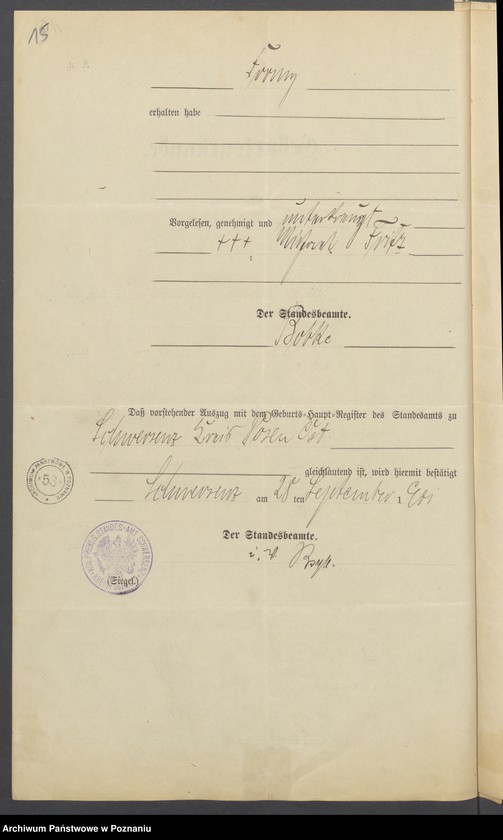 15
erhalten habe
Vorgelesen, genehmigt und unterkreuzt
+++ Michael Fritz
Der Standesbeamte.
Bobke
Daß vorstehender Auszug mit dem Geburts-Haupt-Register des Standesamts zu
Schwersenz Kreis Posen Ost
gleichlautend ist, wird hiermit bestätigt
Schwersenz am 28 ten September 1 901
Der Standesbeamte.
i. V.
(Siegel.)
ARCHIWUM PAŃSTWOWE W POZNANIU
53
Archiwum Państwowe w Poznaniu